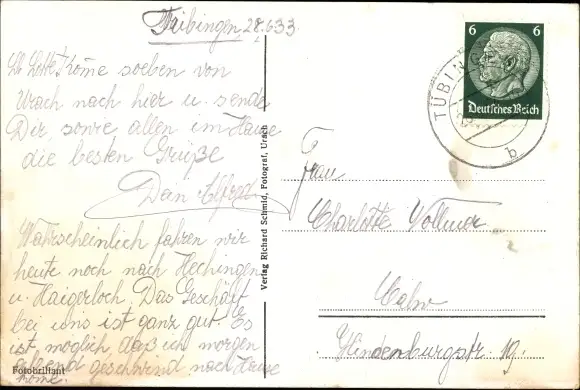 Tübingen, 28.6.33
Lb. Lotte! Komme soeben von
Urach nach hier u. sende
Dir, sowie allen im Hause
die besten Grüße
Dein Alfred
Wahrscheinlich fahren wir
heute noch nach Hechingen
u. Haigerloch. Das Geschäft
bei uns ist ganz gut. Es
ist möglich, daß ich morgen
abend geschwind nach Hause
komme.
Fotobrillant
Verlag Richard Schmid, Fotograf, Urach
6 6
Deutsches Reich
TÜBINGEN
b
Frau
Charlotte Vollmer
Calw
Hindenburgstr. 19.